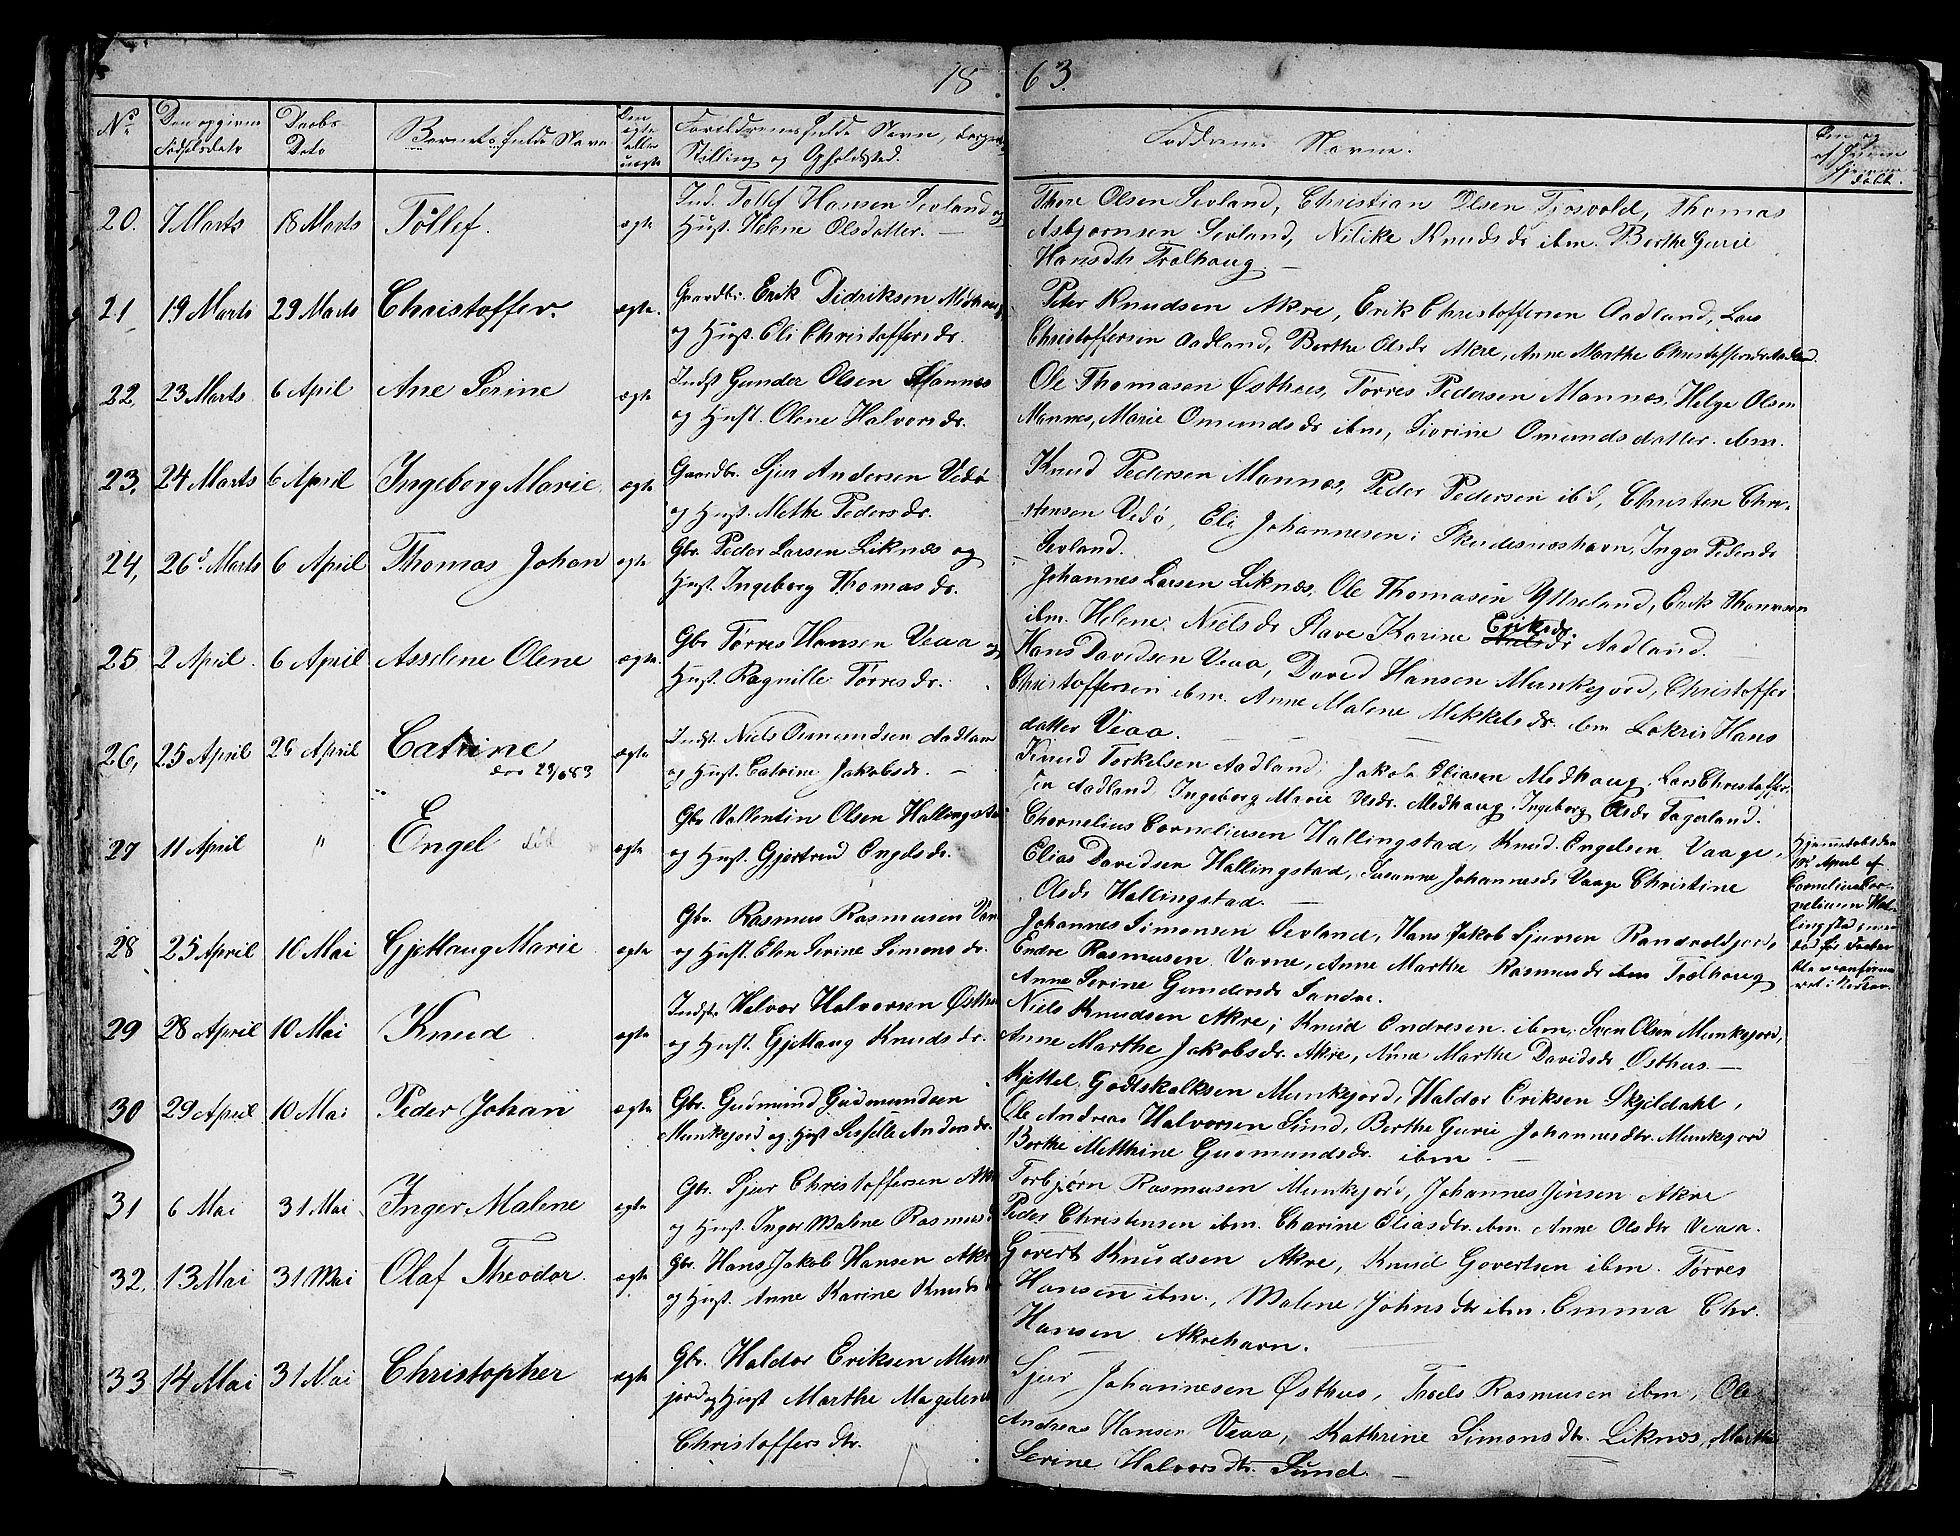 18 63.
No Den opgivne Fødselsdato Daabs Dato Barnets fulde Navn Den ægte eller uægte Forældrenes fulde Navn, Stilling og Opholdsted. Faddernes Navne.
20. 7 Marts 18 Marts Tøllef. ægte Ind. Tollef Hansen Sevland og
Hust. Helene Olsdatter. —
Thore Olsen Sevland, Christian Olsen Tjosvold, Thomas
Asbjørnsen Sevland, Nilike Knudsdr ibm. Berthe Gurie
Hansdtr Trælhaug —
21 19 Marts 29 Marts Christoffer. ægte. Gaardbr. Erik Didriksen Medhaug
og Hust. Eli Christoffersdr.
Peter Knudsen Akre, Erik Christoffersen Aadland, Lars
Christoffersen Aadland, Berthe Olsdr Akre, Anne Marthe Christoffersdr Aadland.
22, 23 Marts 6 April Ane Serine ægte Indst Gunder Olsen Mannes
og Hust. Olene Halvorsdr.
Ole Thomasen Østhus, Tørres Pedersen Mannes, Helge Olsen
Mannes, Marie Omundsdr ibm, Sivrine Omundsdatter ibm.
23. 24 Marts 6 April Ingeborg Marie. ægte Gaardbr. Sjur Andersen Vedø
og Hust. Methe Pedersdr.
Knud Pedersen Mannes, Peder Pedersen ibd, Christen Chri-
stensen Vedø, Eli Johannesen i Skudesneshavn, Inger Pedersdr
Sevland.
24, 26d. Marts 6 April Thomas Johan ægte Gbr. Peder Larsen Liknæs og
Hust. Ingeborg Thomasdr.
Johannes Larsen Liknæs, Ole Thomasen Ytreland, Erik Thomasen
ibm. Helene Nielsdr Stave Karine Eriksdr. Nielsdr Aadland.
25 2 April. 6 April Asselene Olene ægte. Gbr Tørres Hansen Veaa og
Hust. Ragnille Tørresdr.
Hans Davidsen Veaa, David Hansen Munkejord, Christoffer
Christoffersen ibm. Anne Malene Mikkelsdr. ibm Lokris Hans
datter Veaa.
26, 25 April 26 April Catrine ægte Indst. Niels Osmundsen Aadland
23/6 83
og Hust. Catrine Jakobsdr. —
Knud Torkelsen Aadland, Jakob Eliasen Medhaug, Lars Christoffer-
sen Aadland, Ingeborg Marie Olsdr. Medhaug, Ingeborg Olsdr Fagerland.
27 11 April " Engel død ægte Gbr Vallentin Olsen Hallingstad
og Hust. Gjertrud Engelsdr.
Chornelius Corneliusen Hallingstad, Knud Engelsen Vaage,
Elias Davidsen Hallingstad, Susanne Johannesdr Vaage Christine
Olsdr Hallingstad. —
Hjemmedøbt den
April af
Cornelius Cor-
neliusen Hal-
lingstad, men
død før Daaben
blev confirme-
ret i Kirken.
28 25 April 10 Mai Gjettaug Marie ægte Gbr. Rasmus Rasmusen Varne
og Hust. Elen Serine Simonsdr.
Johannes Simonsen Sevland, Hans Jakob Sjursen
Endre Rasmusen Varne, Anne Marthe Rasmusdr Trælhaug
Anne Serine Gundersdr Sandve.
29 28 April 10 Mai Knud ægte Indst. Halvor Halvorsen Østhus
og Hust. Gjettaug Knudsdr.
Niels Knudsen Akre, Knud Endresen ibm, Sven Olsen Munkejord,
Anne Marthe Jakobsdr. Akre, Anne Marthe Davidsdr Østhus. —
30 29 April 10 Mai Peder Johan ægte Gbr. Gudmund Gudmundsen
Munkejord og Hust Sisselle Andersdr.
Kjettel Godtskalksen Munkejord, Haldor Eriksen Skjeldahl,
Ole Andreas Halvorsen Sund, Berthe Gurie Johannesdtr. Munkejord
Berthe Methine Gudmundsdr. ibm —
31 6 Mai 31 Mai Inger Malene ægte Gbr. Sjur Christoffersen Akre
og Hust. Inger Malene Rasmusdr
Torbjørn Rasmusen Munkejord, Johannes Jensen Akre
Peder Christensen ibm. Charine Eliasdtr. ibm. Anne Olsdtr Veaa.
32. 13 Mai 31 Mai Olaf Theodor. ægte Gbr. Hans Jakob Hansen Akre
og Hust. Anne Karine Knudsdr
Govert Knudsen Akre, Knud Govertsen ibm. Tørres
Hansen ibm., Malene Johnsdtr ibm. Emma Chr.
Hansen Akrehavn.
33 14 Mai 31 Mai Christopher ægte Gbr. Haldor Eriksen Munke
jord og Hust Marthe Magelene
Christoffersdtr.
Sjur Johannesen Østhus, Troels Rasmusen ibm, Ole
Andreas Hansen Veaa, Kathrine Simonsdtr. Liknæs, Marthe
Serine Halvorsdtr. Sund. —